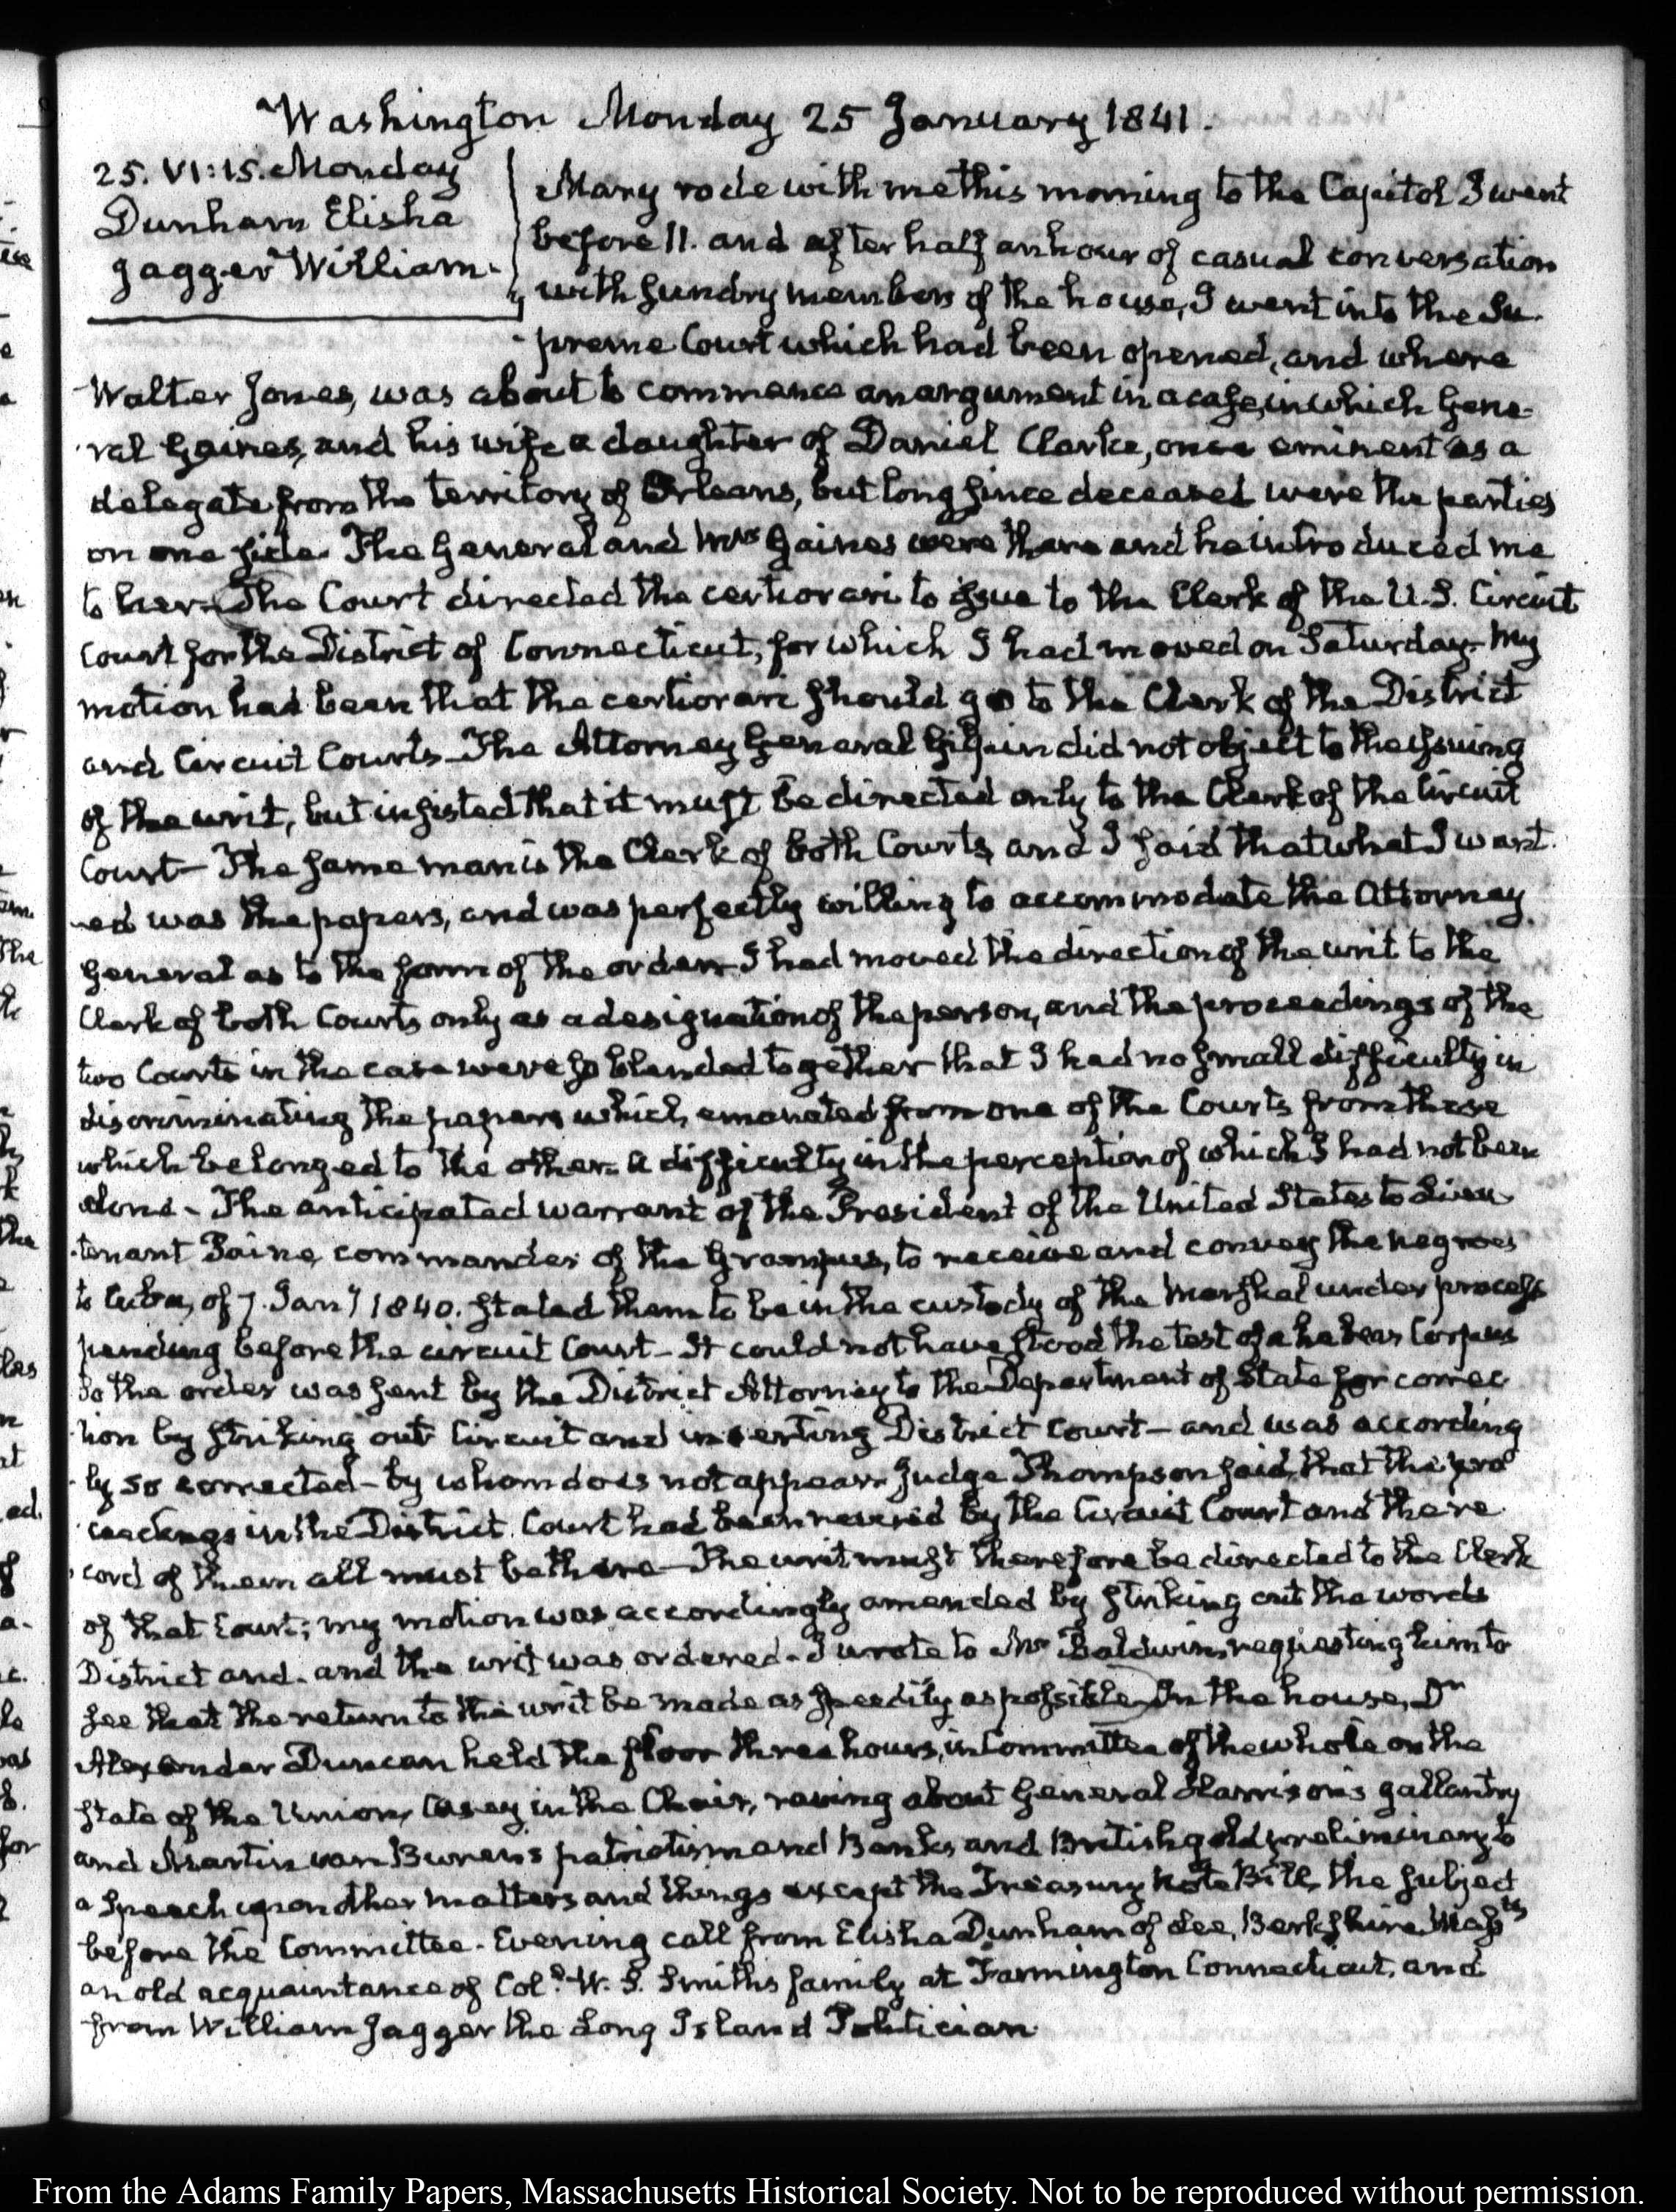 Washington Monday 25 January 1841.
25. VI:15. Monday
Dunham Elisha
Jagger William.
Mary rode with me this morning to the Capitol I went
before 11. and after half an hour of casual conversation
with sundry members of the house, I went into the Su-
-preme Court which had been opened, and where
Walter Jones, was about to commence an argument in a case, in which Gene-
-ral Gaines, and his wife a daughter of Daniel Clarke, once eminent as a
delegate from the territory of Orleans, but long since deceased were the parties
on one side. The General and Mrs Gaines were there and he introduced me
to her. The Court directed the certiorari to issue to the Clerk of the U.S. Circuit
Court for the District of Connecticut, for which I had moved on Saturday. My
motion had been that the certiorari should go to the Clerk of the District
and Circuit Courts. The Attorney General Gilpin did not object to the issuing
of the writ, but insisted that it must be directed only to the Clerk of the Circuit
Court— The same man is the Clerk of both Courts, and I said that what I want-
-ed was the papers, and was perfectly willing to accommodate the Attorney
General as to the form of the order. I had moved the direction of the writ to the
Clerk of both Courts only as a designation of the person, and the proceedings of the
two Courts in the case were so blended together that I had no small difficulty in
discriminating the papers which emanated from one of the Courts from those
which belonged to the other. a difficulty in the perception of which I had not been
alone - The anticipated warrant of the President of the United States to Lieu-
-tenant Paine, commander of the Grampus, to receive and convey the negroes
to Cuba, of 7. Jany 1840. stated them to be in the custody of the Marshal under process
pending before the circuit Court - It could not have stood the test of a habeas Corpus
So the order was sent by the District Attorney to the Department of State for correc-
-tion by striking out Circuit and inserting District Court - and was according-
-ly so corrected - by whom does not appear. Judge Thompson said, that the pro-
-ceedings in the District Court had been revised by the Circuit Court and the re-
-cord of them all must be there— The writ must therefore be directed to the Clerk
of that Court; my motion was accordingly amended by striking out the words
District and. and the writ was ordered. I wrote to Mr Baldwin, requesting him to
see that the return to the writ be made as speedily as possible. In the house, Dr
Alexander Duncan held the floor three hours, in Committee of the whole on the
state of the Union, Casey in the Chair, raving about General Harrison's gallantry
and Martin van Buren's patriotism and Banks and British gold, preliminary to
a Speech upon other matters and things except the Treasury Note Bill, the subject
before the Committee. Evening call from Elisha Dunham of Lee, Berkshire Massts
an old acquaintance of Col. W. S. Smith's family at Farmington Connecticut, and
from William Jagger the Long Island Politician.
From the Adams Family Papers, Massachusetts Historical Society. Not to be reproduced without permission.